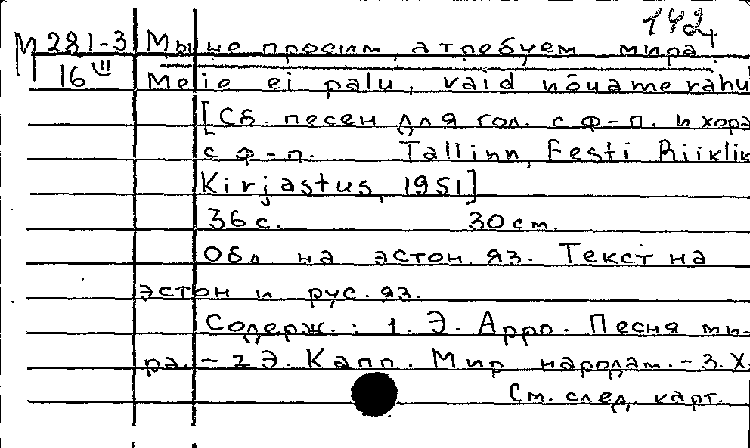 142
М 281-3 Мы не просим, а требуем мира
16 III Meie ei palu, vaid nõuame rahu
[Сб. песен для гол. с ф-п. и хора
с ф-п. Tallinn, Eesti Riiklik
Kirjastus, 1951]
36 с. 30 см.
Обл на эстон. яз. Текст на
эстон и рус. яз.
Содерж.: 1. Э. Арро. Песня ми-
ра. - 2 Э. Капп. Мир народам. - 3. Х.
См. след. карт.